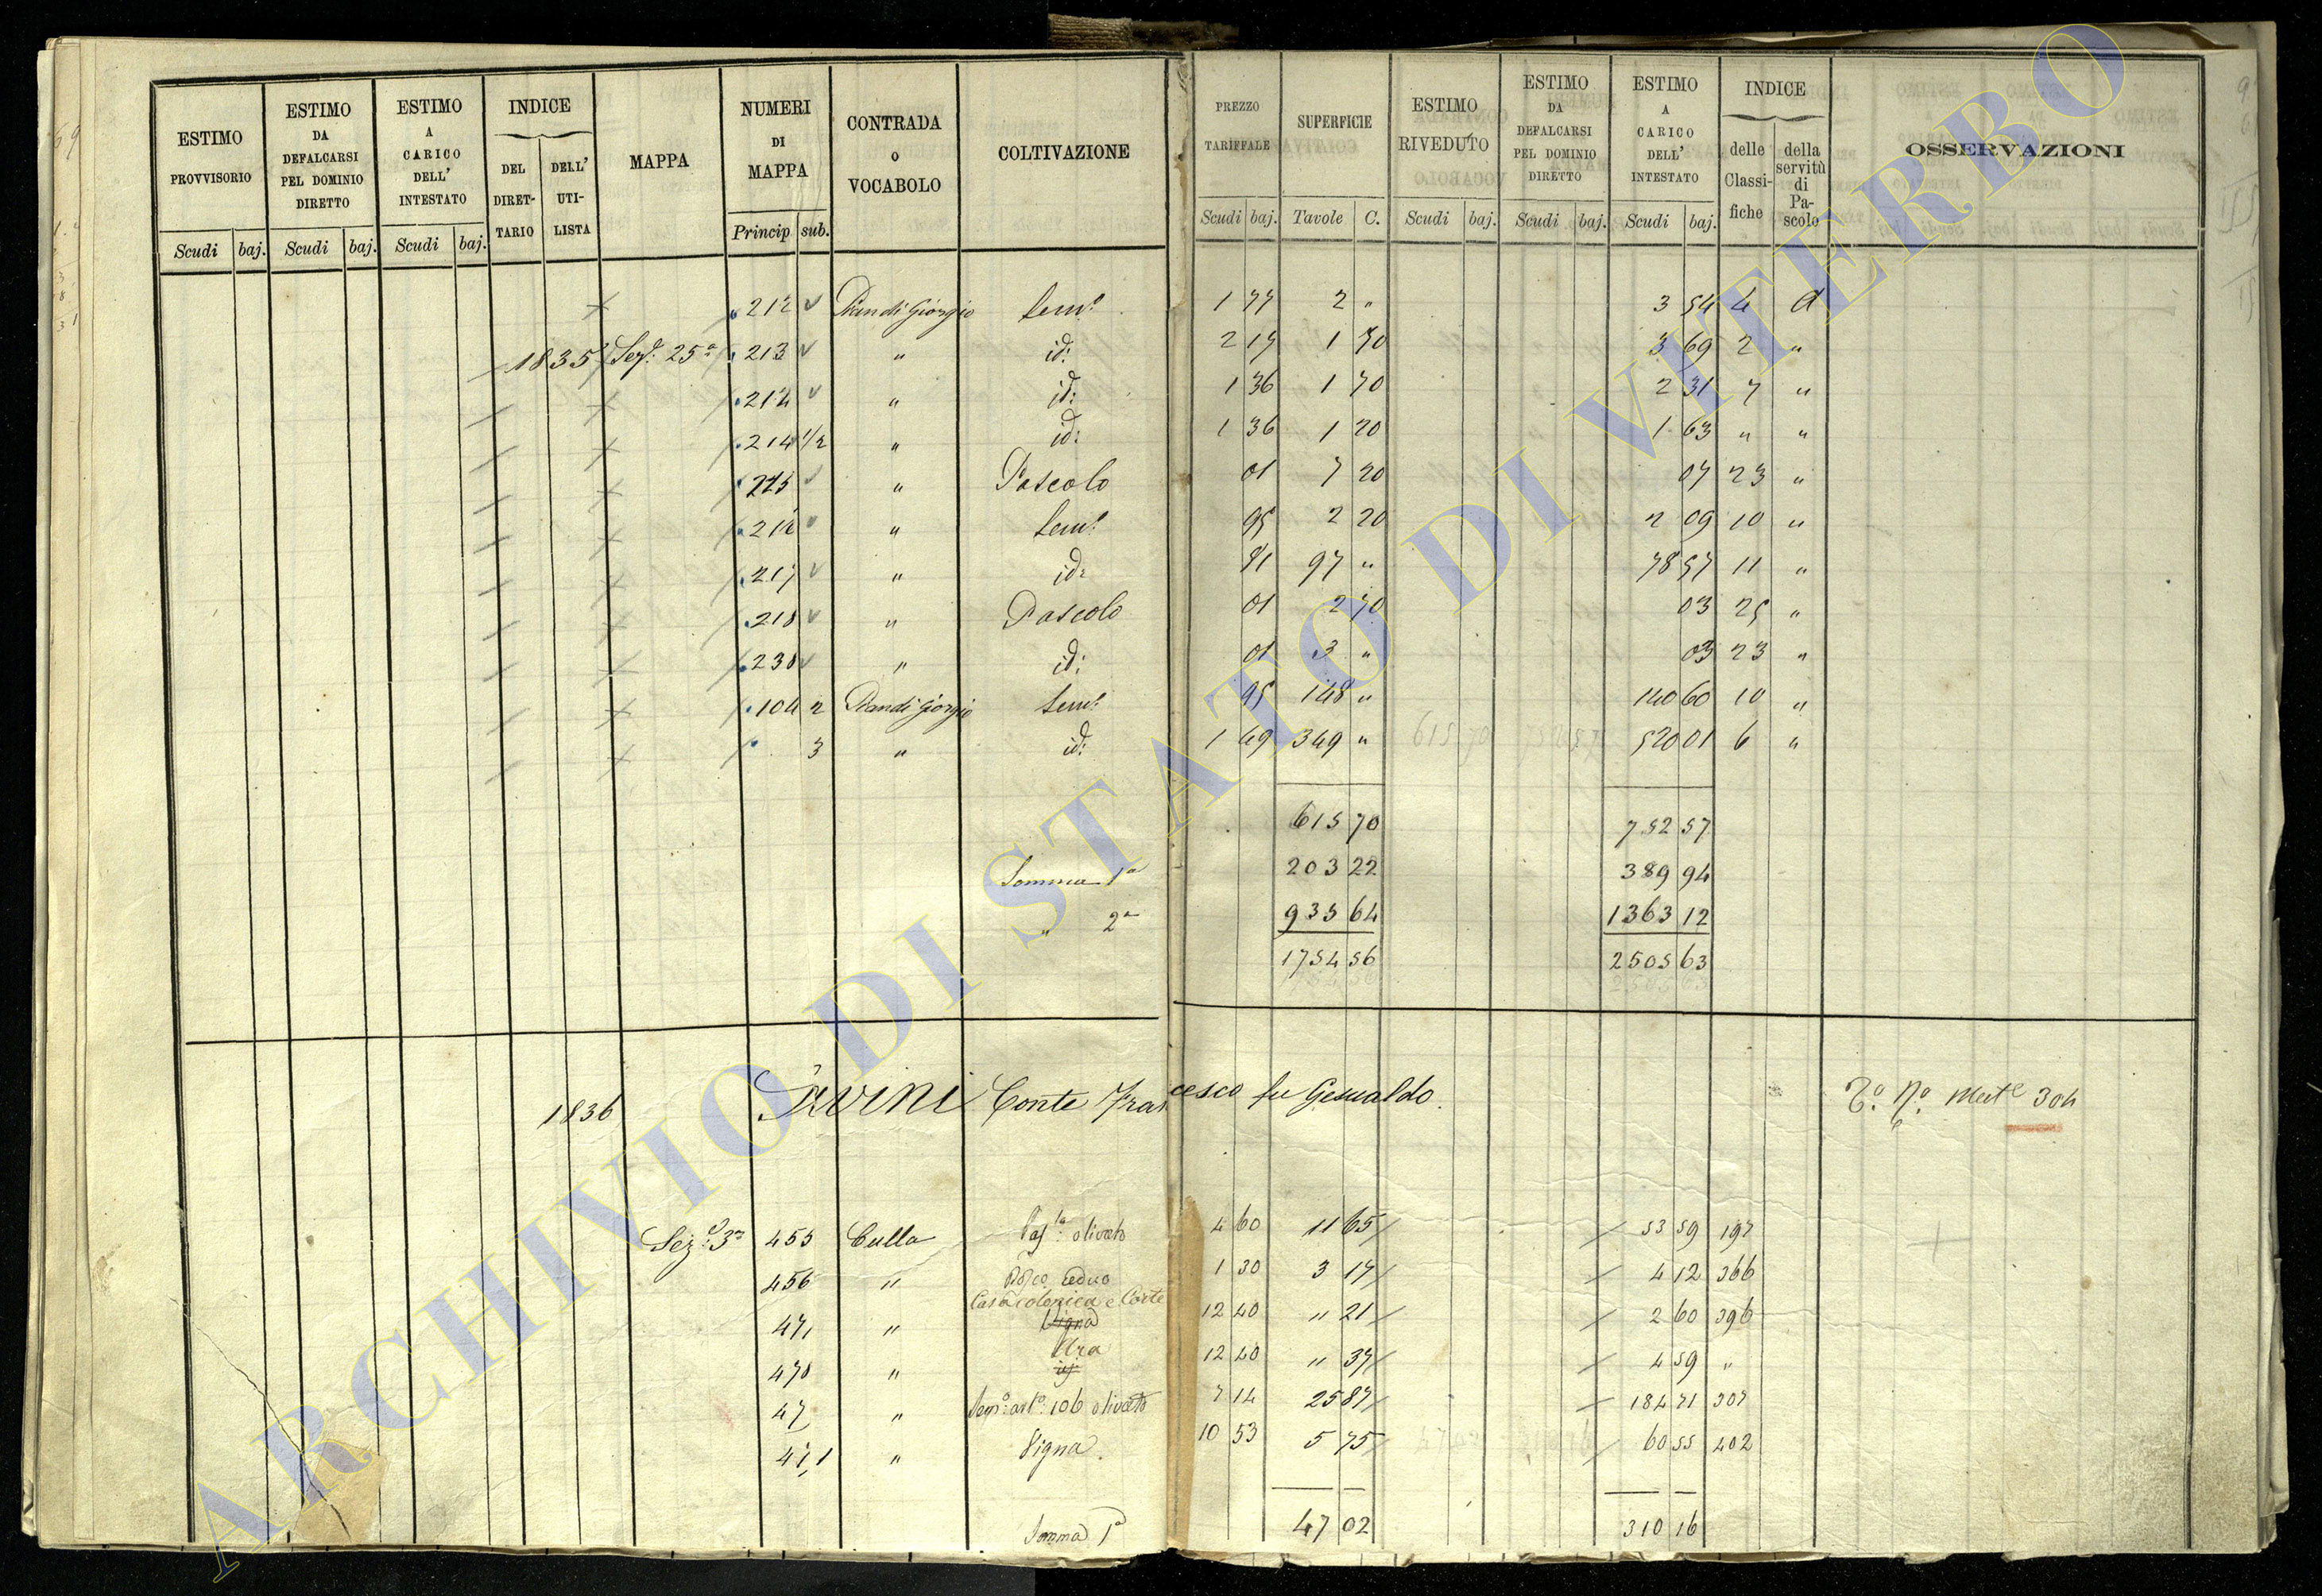 ESTIMO PROVVISORIO Scudi baj. ESTIMO DA DEFALCARSI PEL DOMINIO DIRETTO Scudi baj. ESTIMO A CARICO DELL' INTESTATO Scudi baj. INDICE DEL DIRET-TARIO DELL' UTI-LISTA MAPPA NUMERI DI MAPPA Princip sub. CONTRADA O VOCABOLO COLTIVAZIONE PREZZO TARIFFALE Scudi baj. SUPERFICIE Tavole C. ESTIMO RIVEDUTO Scudi baj. ESTIMO DA DEFALCARSI PEL DOMINIO DIRETTO Scudi baj. ESTIMO A CARICO DELL' INTESTATO Scudi baj. INDICE delle Classi-fiche della servitù di Pa-scolo OSSERVAZIONI
212 Pian di Giorgio Sem.o 1 77 2 " 3 54 4 d
1835 Sez.e 25a 213 " id: 2 17 1 70 3 69 2 "
214 " id: 1 36 1 70 2 31 7 "
214 1/2 " id: 1 36 1 20 1 63 " "
215 " Pascolo 01 7 20 07 23 "
216 " Sem.o 95 2 20 2 09 10 "
217 " id: 81 97 " 78 57 11 "
218 " Pascolo 01 2 70 03 25 "
238 " id: 01 3 " 03 23 "
104 2 Pian di Giorgio Sem.o 95 148 " 140 60 10 "
3 " id: 1 49 349 " 520 01 6 "
615 70 752 57
Somma 1a 203 22 389 94
" 2a 935 64 1363 12
1754 56 2505 63
1836 Savini Conte Francesco fu Gesualdo. 304
Sez.e 3a 455 Culla Pas.o olivato 4 60 11 65 53 59 197
456 " Bosco ceduo 1 30 3 17 4 12 366
Casa colonica e Corte
47 " Vigna 12 40 " 21 2 60 396
Ara
470 " id 12 40 " 37 4 59 "
47 " Sem.o arb.o 106 olivato 7 14 25 87 184 71 307
" Vigna 10 53 5 75 60 55 402
Somma 1a 47 02 310 16
ARCHIVIO DI STATO DI VITERBO